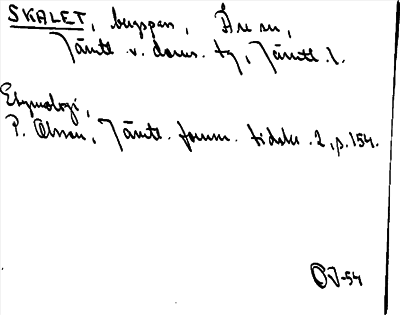 SKALET, bergspass, Åre sn,
Jämtl. v. doms. tg, Jämtl. l.
Etymologi,
P. Olsson, Jämtl. fornm. tidskr. 2, p. 154.
OJ-54